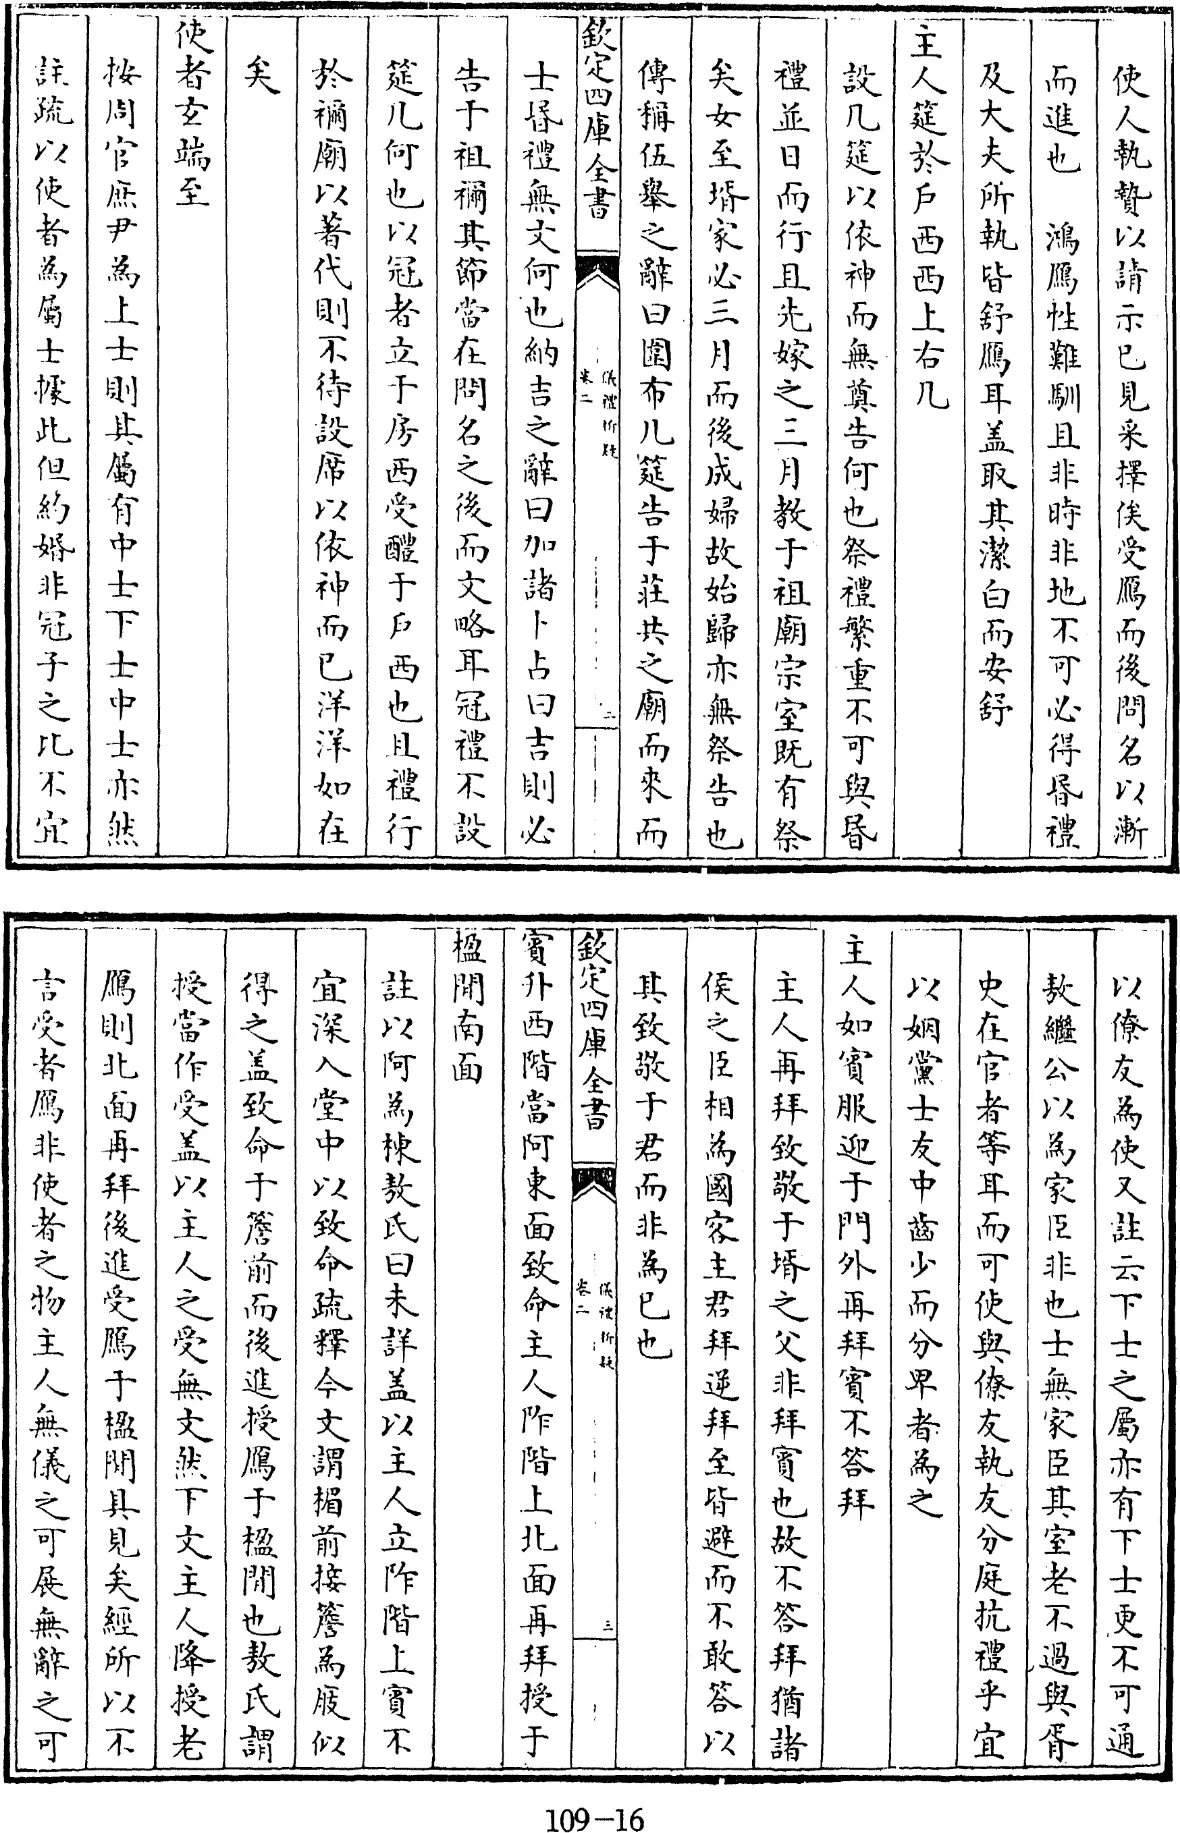 使人執贄以請示已見采擇俟受鴈而後問名以漸
而進也　鴻鴈性難馴且非時非地不可必得昏禮
及大夫所執皆舒鴈耳盖取其潔白而安舒
主人筵於戶西西上右几
設几筵以依神而無奠告何也祭禮繁重不可與昏
禮並日而行且先嫁之三月教于祖廟宗室既有祭
矣女至壻家必三月而後成婦故始歸亦無祭告也
傳稱伍舉之辭曰圍布几筵告于莊共之廟而來而
欽定四庫全書
儀禮析疑
卷二
二
士昏禮無文何也納吉之辭曰加諸卜占曰吉則必
告于祖禰其節當在問名之後而文略耳冠禮不設
筵几何也以冠者立于房西受醴于戶西也且禮行
於禰廟以著代則不待設席以依神而已洋洋如在
矣
使者玄端至
按周官庶尹為上士則其屬有中士下士中士亦然
註疏以使者為屬士據此但約婚非冠子之比不宜
以僚友為使又註云下士之屬亦有下士更不可通
敖繼公以為家臣非也士無家臣其室老不過與胥
史在官者等耳而可使與僚友執友分庭抗禮乎宜
以姻黨士友中齒少而分卑者為之
主人如賓服迎于門外再拜賓不答拜
主人再拜致敬于壻之父非拜賓也故不答拜猶諸
侯之臣相為國客主君拜逆拜至皆避而不敢答以
其致敬于君而非為已也
欽定四庫全書
儀禮析疑
卷二
三
賓升西階當阿東面致命主人阼階上北面再拜授于
楹閒南面
註以阿為棟敖氏曰未詳盖以主人立阼階上賓不
宜深入堂中以致命疏釋今文謂楣前接簷為庪似
得之盖致命于簷前而後進授鴈于楹閒也敖氏謂
授當作受盖以主人之受無文然下文主人降授老
鴈則北面再拜後進受鴈于楹閒具見矣經所以不
言受者鴈非使者之物主人無儀之可展無辭之可
109-16